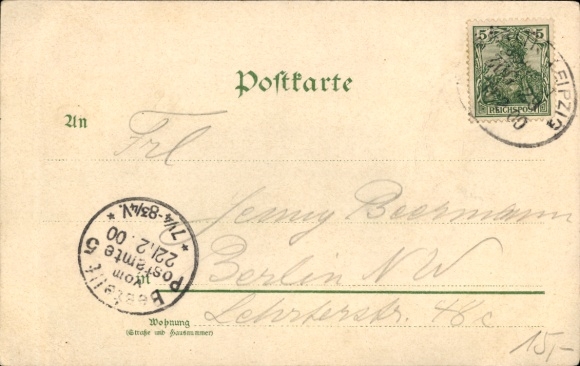 Postkarte
5 5
REICHSPOST
LEIPZIG
00
An
Frl
Jenny Beermann
in
Berlin NW
Lehrterstr. 48c
Wohnung
(Straße und Hausnummer)
Bestellt
vom
Postamte 5
22.2.00
*7¼-8¾V.*
15,-